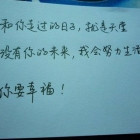 和你走过的日子，都是天堂
没有你的未来，我会努力生活
你要幸福！